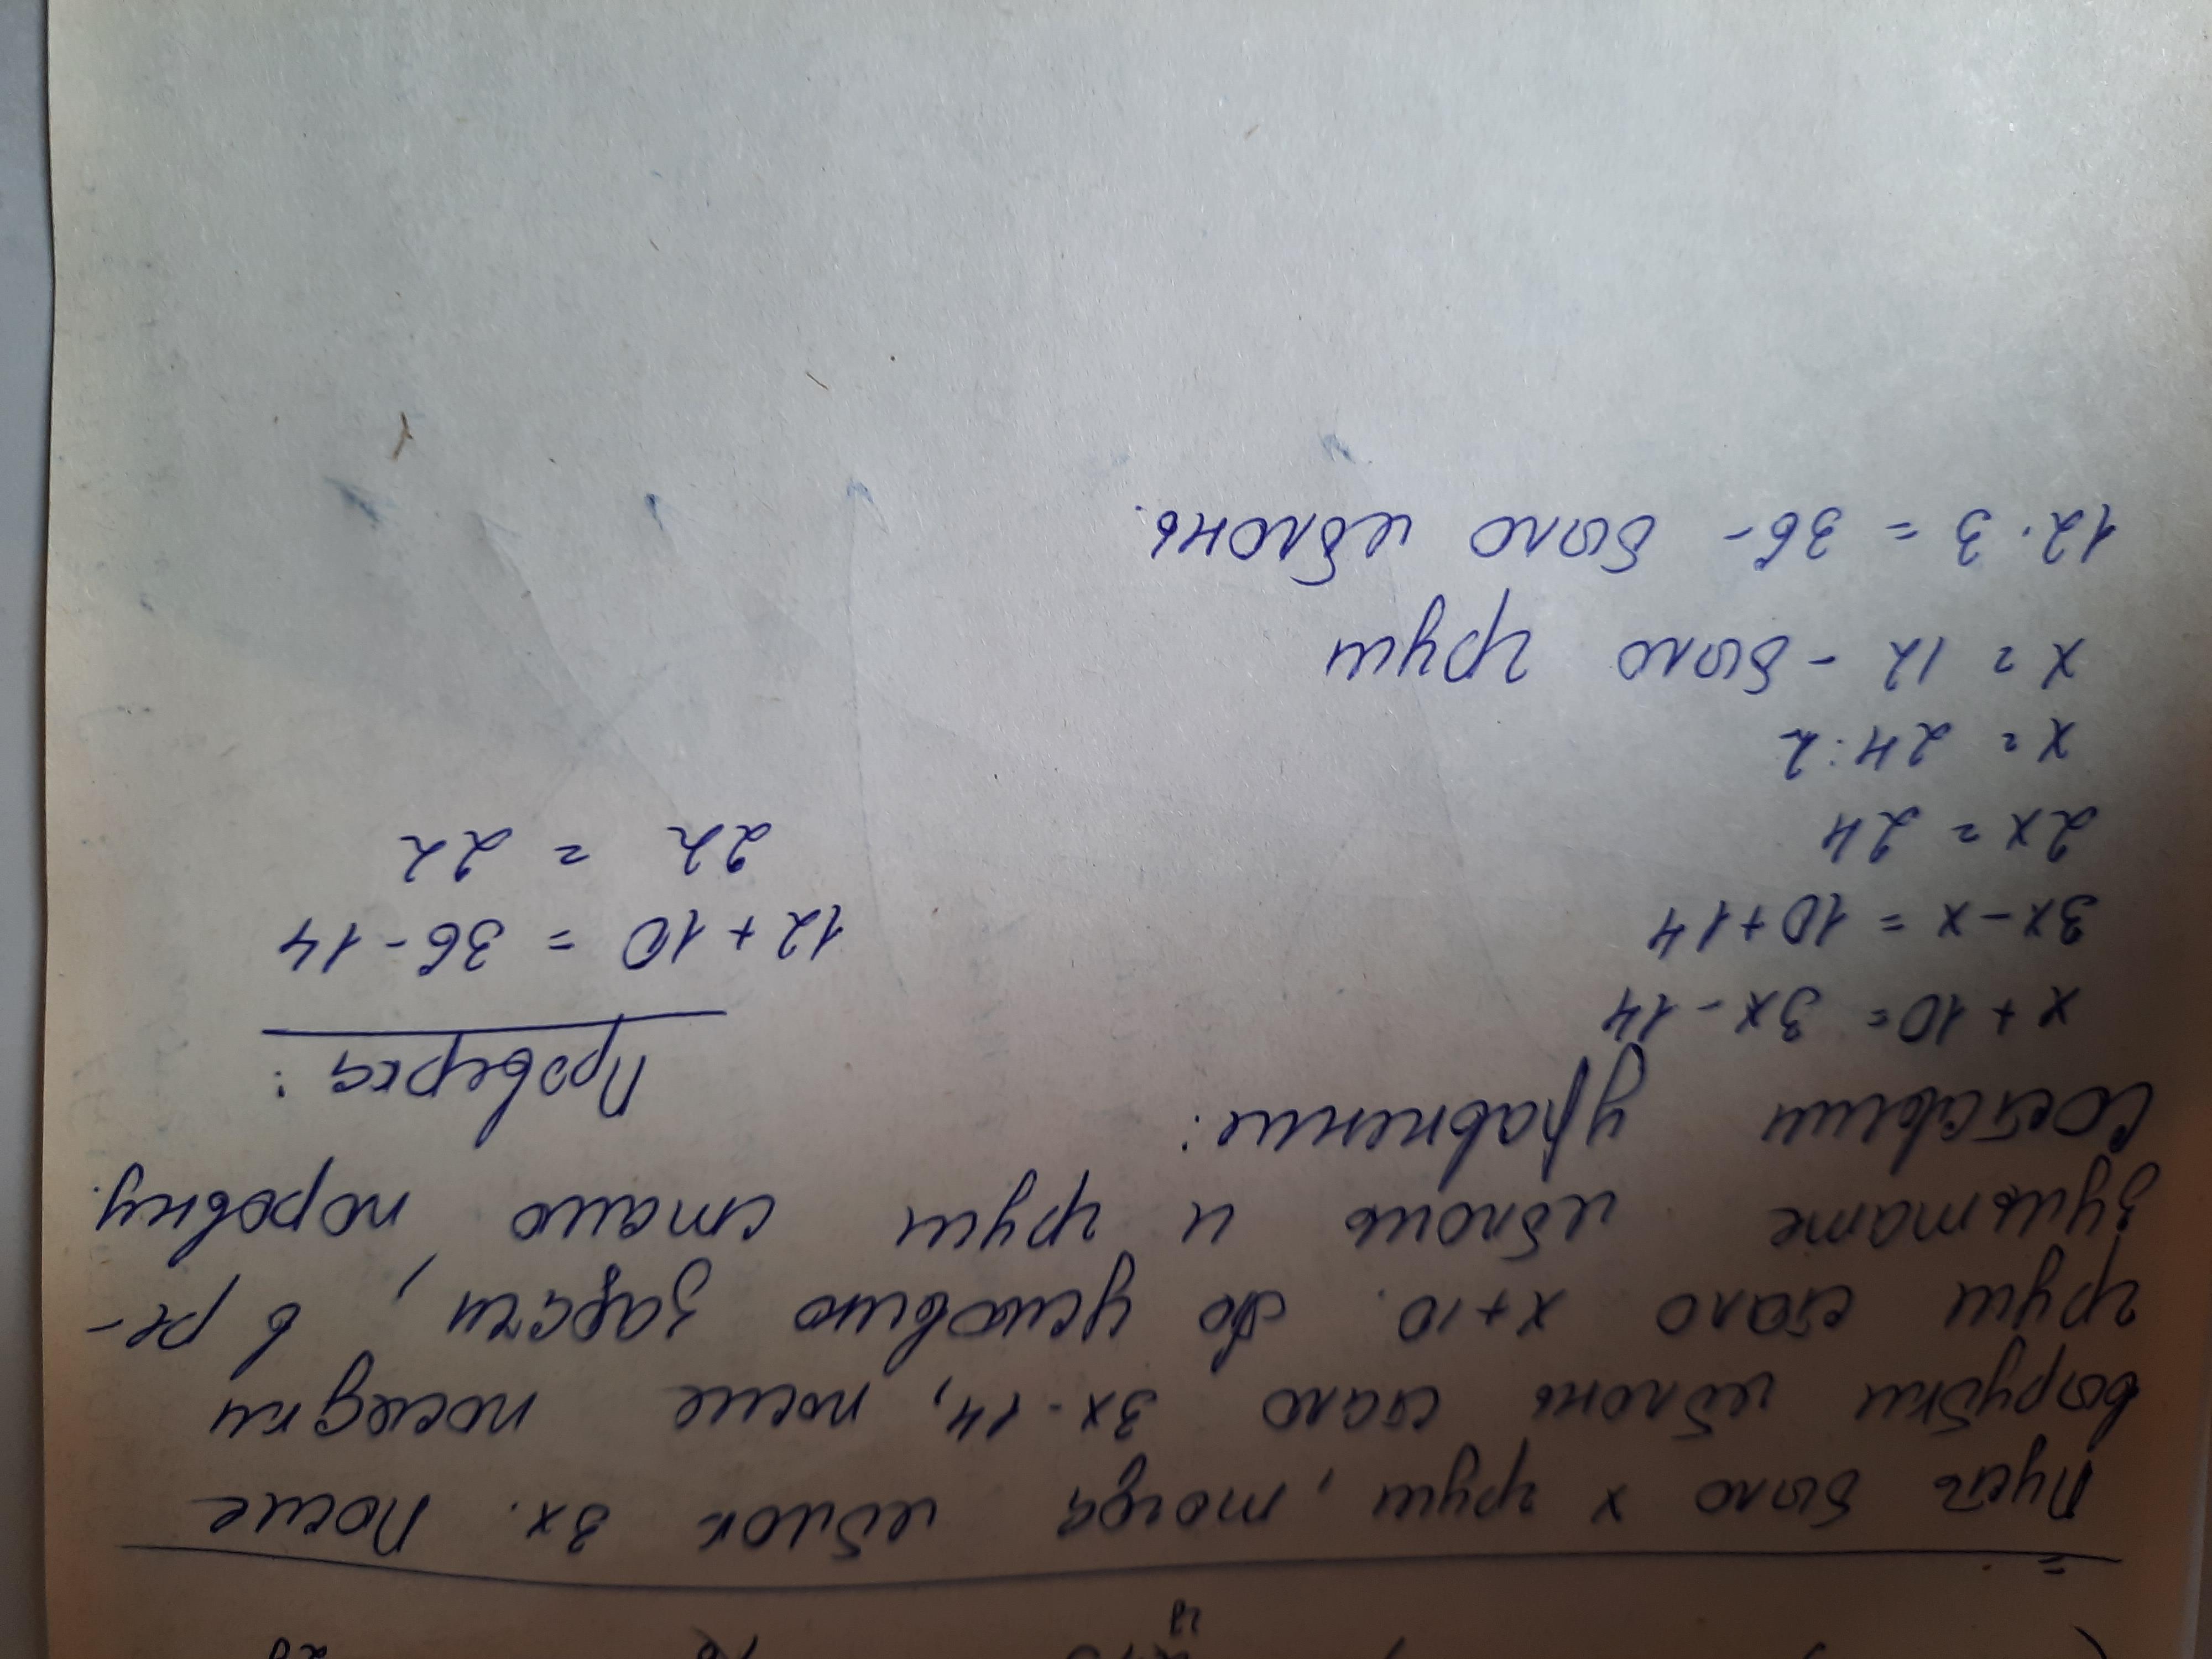 Пусть было x груш, тогда яблок 3x. После
вырубки яблонь стало 3x-14, после посадки
груш стало x+10. По условию задачи, в ре-
зультате яблонь и груш стало поровну.
Составим уравнение:
x+10=3x-14
3x-x=10+14
2x=24
x=24:2
x=12 - было груш
12·3=36- было яблонь.
Проверка:
12+10=36-14
22=22